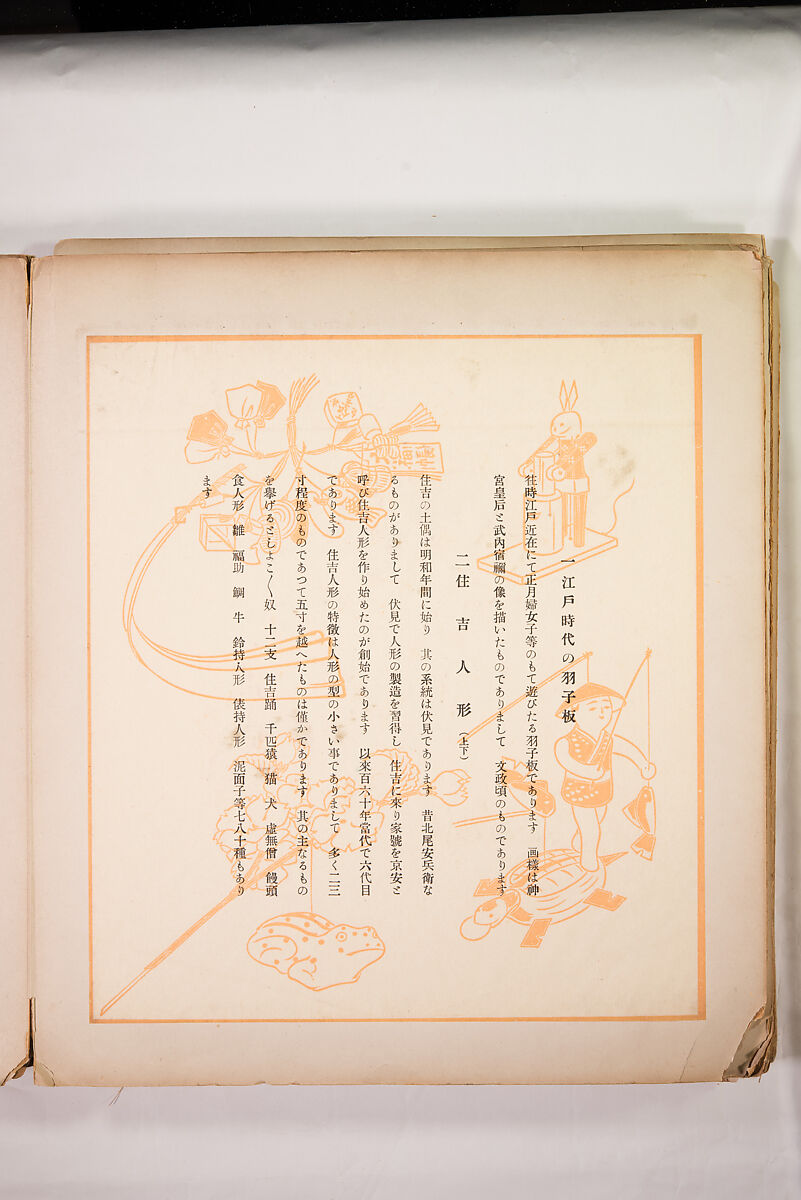 一 江戸時代の羽子板
往時江戸近在にて正月婦女子等のもて遊びたる羽子板であります 画様は神
宮皇后と武内宿禰の像を描いたものでありまして 文政頃のものであります
二 住吉人形(上下)
住吉の土偶は明和年間に始り 其の系統は伏見であります 昔北尾安兵衛な
るものがありまして 伏見で人形の製造を習得し 住吉に來り家號を京安と
呼び住吉人形を作り始めたのが創始であります 以來百六十年當代で六代目
であります 住吉人形の特徴は人形の型の小さい事でありまして 多く二三
寸程度のものであつて五寸を越へたものは僅かであります 其の主なるもの
を擧げるとしよこ〳〵奴 十二支 住吉踊 千匹猿 猫 犬 虚無僧 饅頭
食人形 雛 福助 鯛 牛 鈴持人形 俵持人形 泥面子等七八十種もあり
ます